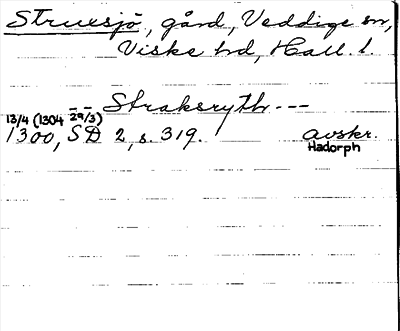 Struesjö, gård, Veddige sn,
Viske hd, Hall. l.
-- Straksryth ---
13/4 (1304 29/3)
1300, SD 2, s. 319. avskr.
Hadorph